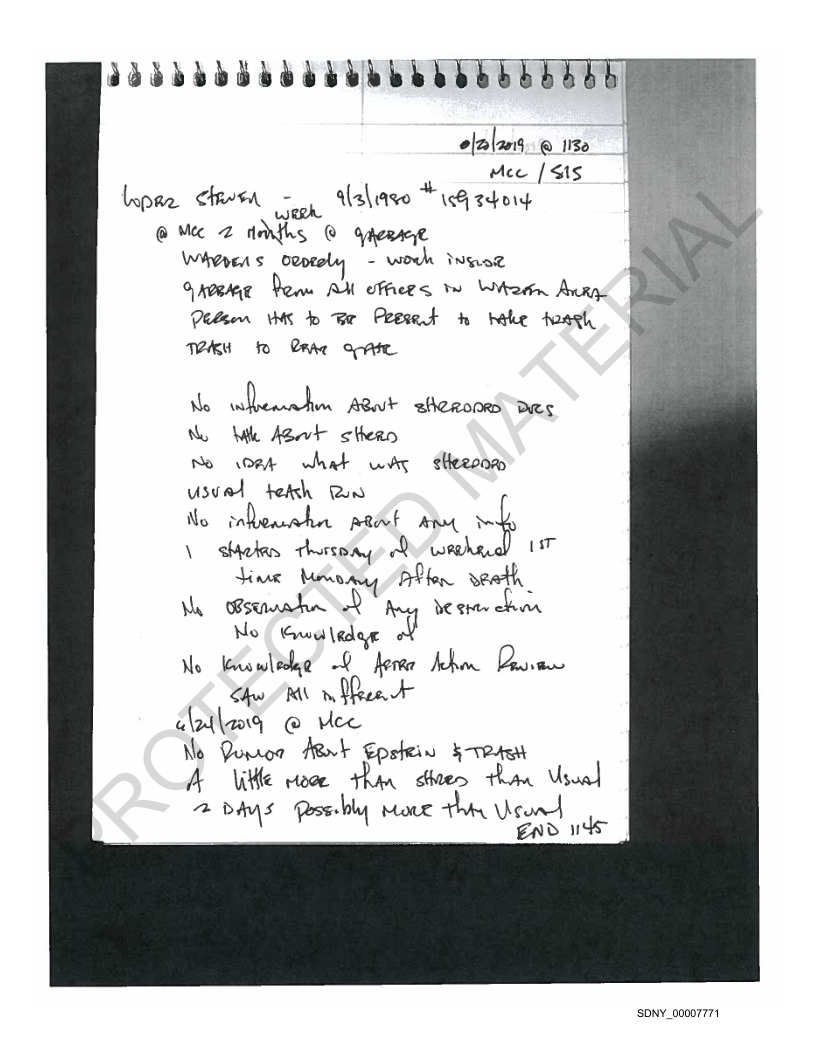 /20/2019 @ 1130
MCC / SIS
Lopez Steven - 9/3/1980 # 15934014
week
@ MCC 2 months @ garbage
Wardens orderly - work inside
garbage from all offices in Warden Area
Person has to be present to take trash
Trash to rear gate
No information about shredded docs
No talk about shred
No idea what was shredded
usual trash run
No information about any info
1 started Thursday of weekend 1st
time Monday after death
No observation of any destruction
No knowledge of
No knowledge of After Action Review
SAW All
/24/2019 @ MCC
No Rumor about Epstein & TRASH
A little more than shred than usual
2 days possibly more than usual
END 1145
PROTECTED MATERIAL
SDNY_00007771